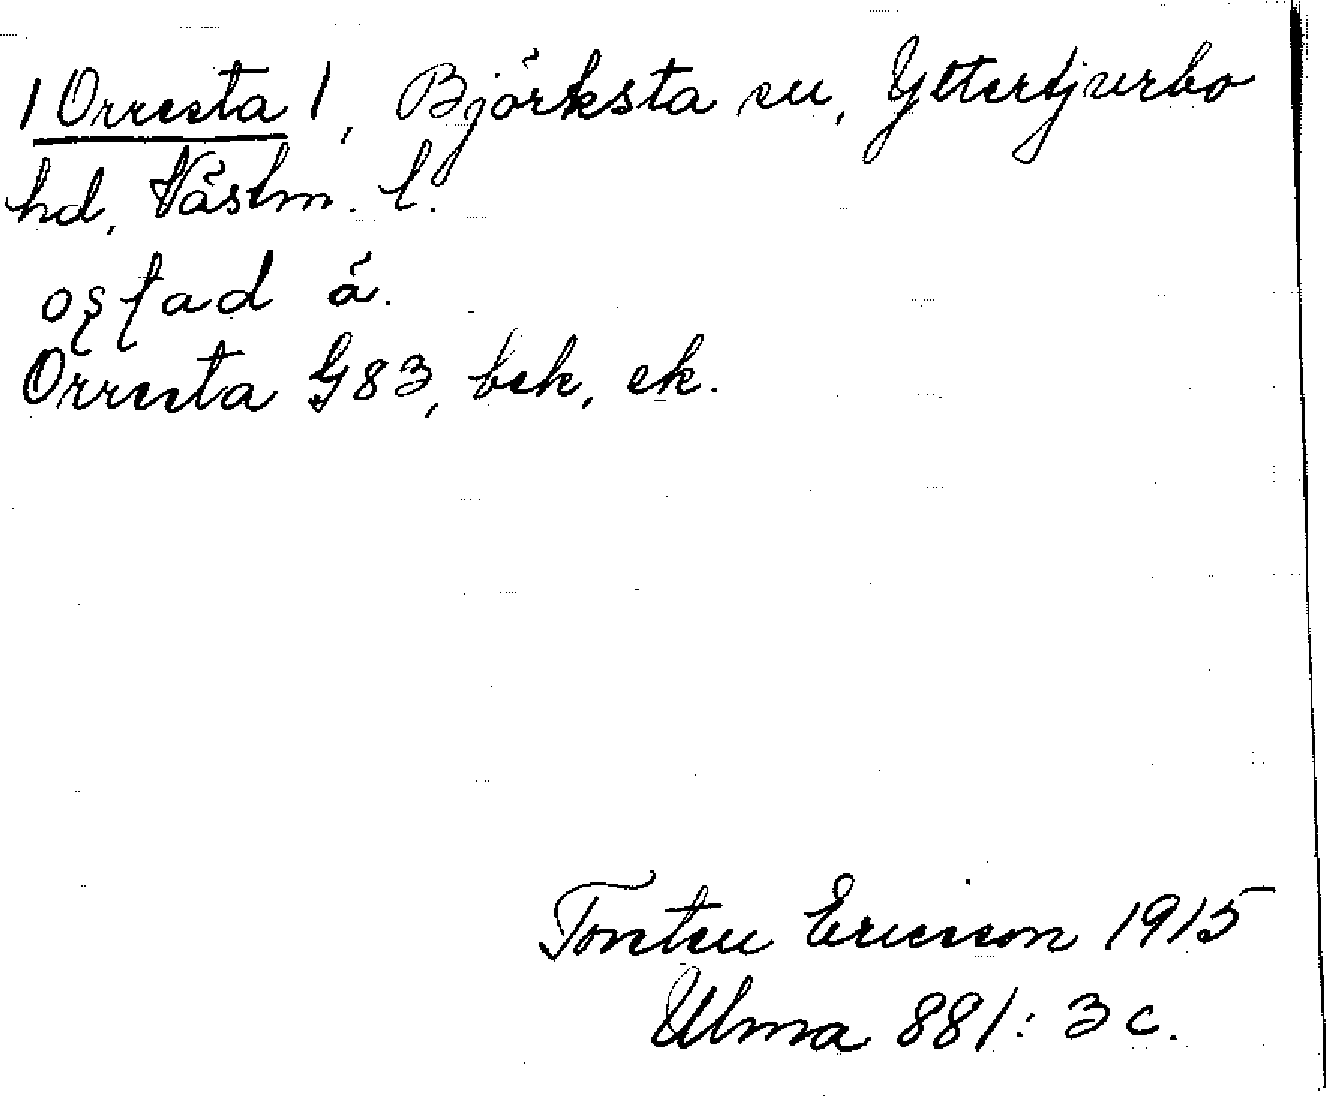 /Orresta/, Björksta sn, Yttertjurbo
hd, Västm. l.
oʂʈad å.
Orresta G83, bek, ek.
Torsten Ericsson 1915
Ulma 881: 3 c.